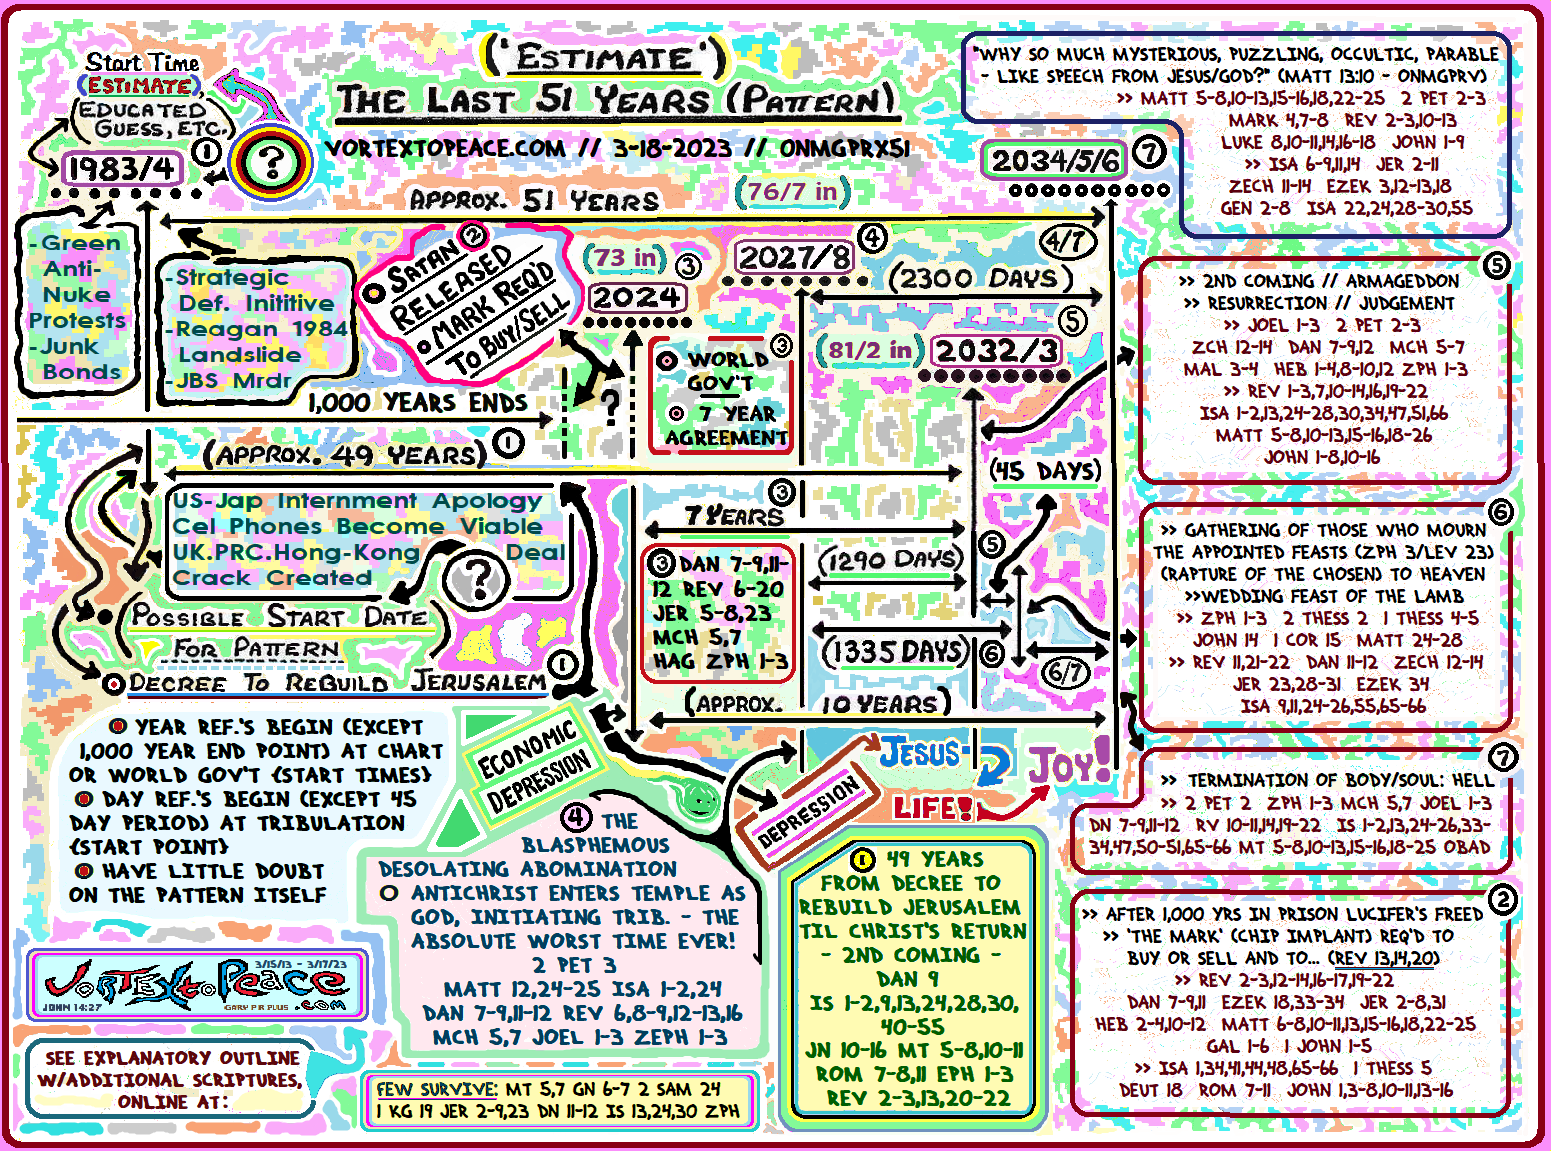 ('ESTIMATE')
THE LAST 51 YEARS (PATTERN)
VORTEXTOPEACE.COM // 3-18-2023 // ONMGPRX51
Start Time
(ESTIMATE),
(EDUCATED
GUESS, ETC.)
1983/4
1
?
APPROX. 51 YEARS
(76/7 in)
2034/5/6
7
"WHY SO MUCH MYSTERIOUS, PUZZLING, OCCULTIC, PARABLE
- LIKE SPEECH FROM JESUS/GOD?" (MATT 13:10 - ONMGPRV)
>> MATT 5-8,10-13,15-16,18,22-25 2 PET 2-3
MARK 4,7-8 REV 2-3,10-13
LUKE 8,10-11,14,16-18 JOHN 1-9
>> ISA 6-9,11,14 JER 2-11
ZECH 11-14 EZEK 3,12-13,18
GEN 2-8 ISA 22,24,28-30,55
-Green
Anti-
Nuke
Protests
-Junk
Bonds
-Strategic
Def. Inititive
-Reagan 1984
Landslide
-JBS Mrdr
2
SATAN
RELEASED
MARK REQ'D
TO BUY/SELL
(73 in)
3
2024
2027/8
4
4/7
(2300 DAYS)
5
(81/2 in)
2032/3
3
WORLD
GOV'T
7 YEAR
AGREEMENT
?
1,000 YEARS ENDS
(APPROX. 49 YEARS)
1
(45 DAYS)
US-Jap Internment Apology
Cel Phones Become Viable
UK.PRC.Hong-Kong Deal
Crack Created
?
(POSSIBLE START DATE)
FOR PATTERN
DECREE TO REBUILD JERUSALEM
1
3
7 YEARS
3 DAN 7-9,11-
12 REV 6-20
JER 5-8,23
MCH 5,7
HAG ZPH 1-3
(1290 DAYS)
5
(1335 DAYS)
6
6/7
(APPROX. 10 YEARS)
5
>> 2ND COMING // ARMAGEDDON
>> RESURRECTION // JUDGEMENT
>> JOEL 1-3 2 PET 2-3
ZCH 12-14 DAN 7-9,12 MCH 5-7
MAL 3-4 HEB 1-4,8-10,12 ZPH 1-3
>> REV 1-3,7,10-14,16,19-22
ISA 1-2,13,24-28,30,34,47,51,66
MATT 5-8,10-13,15-16,18-26
JOHN 1-8,10-16
6
>> GATHERING OF THOSE WHO MOURN
THE APPOINTED FEASTS (ZPH 3/LEV 23)
(RAPTURE OF THE CHOSEN) TO HEAVEN
>>WEDDING FEAST OF THE LAMB
>> ZPH 1-3 2 THESS 2 1 THESS 4-5
JOHN 14 1 COR 15 MATT 24-28
>> REV 11,21-22 DAN 11-12 ZECH 12-14
JER 23,28-31 EZEK 34
ISA 9,11,24-26,55,65-66
7
>> TERMINATION OF BODY/SOUL: HELL
>> 2 PET 2 ZPH 1-3 MCH 5,7 JOEL 1-3
DN 7-9,11-12 RV 10-11,14,19-22 IS 1-2,13,24-26,33-
34,47,50-51,65-66 MT 5-8,10-13,15-16,18-25 OBAD
2
>> AFTER 1,000 YRS IN PRISON LUCIFER'S FREED
>> 'THE MARK' (CHIP IMPLANT) REQ'D TO
BUY OR SELL AND TO... (REV 13,14,20)
>> REV 2-3,12-14,16-17,19-22
DAN 7-9,11 EZEK 18,33-34 JER 2-8,31
HEB 2-4,10-12 MATT 6-8,10-11,13,15-16,18,22-25
GAL 1-6 1 JOHN 1-5
>> ISA 1,34,41,44,48,65-66 1 THESS 5
DEUT 18 ROM 7-11 JOHN 1,3-8,10-11,13-16
YEAR REF.'S BEGIN (EXCEPT
1,000 YEAR END POINT) AT CHART
OR WORLD GOV'T {START TIMES}
DAY REF.'S BEGIN (EXCEPT 45
DAY PERIOD) AT TRIBULATION
{START POINT}
HAVE LITTLE DOUBT
ON THE PATTERN ITSELF
ECONOMIC
DEPRESSION
DEPRESSION
JESUS
LIFE!
JOY!
4 THE
BLASPHEMOUS
DESOLATING ABOMINATION
ANTICHRIST ENTERS TEMPLE AS
GOD, INITIATING TRIB. - THE
ABSOLUTE WORST TIME EVER!
2 PET 3
MATT 12,24-25 ISA 1-2,24
DAN 7-9,11-12 REV 6,8-9,12-13,16
MCH 5,7 JOEL 1-3 ZEPH 1-3
1 49 YEARS
FROM DECREE TO
REBUILD JERUSALEM
TIL CHRIST'S RETURN
- 2ND COMING -
DAN 9
IS 1-2,9,13,24,28,30,
40-55
JN 10-16 MT 5-8,10-11
ROM 7-8,11 EPH 1-3
REV 2-3,13,20-22
3/15/13 - 3/17/23
VORTEXtoPeace
.COM
JOHN 14:27
GARY P R PLUS
SEE EXPLANATORY OUTLINE
W/ADDITIONAL SCRIPTURES,
ONLINE AT:
FEW SURVIVE: MT 5,7 GN 6-7 2 SAM 24
1 KG 19 JER 2-9,23 DN 11-12 IS 13,24,30 ZPH